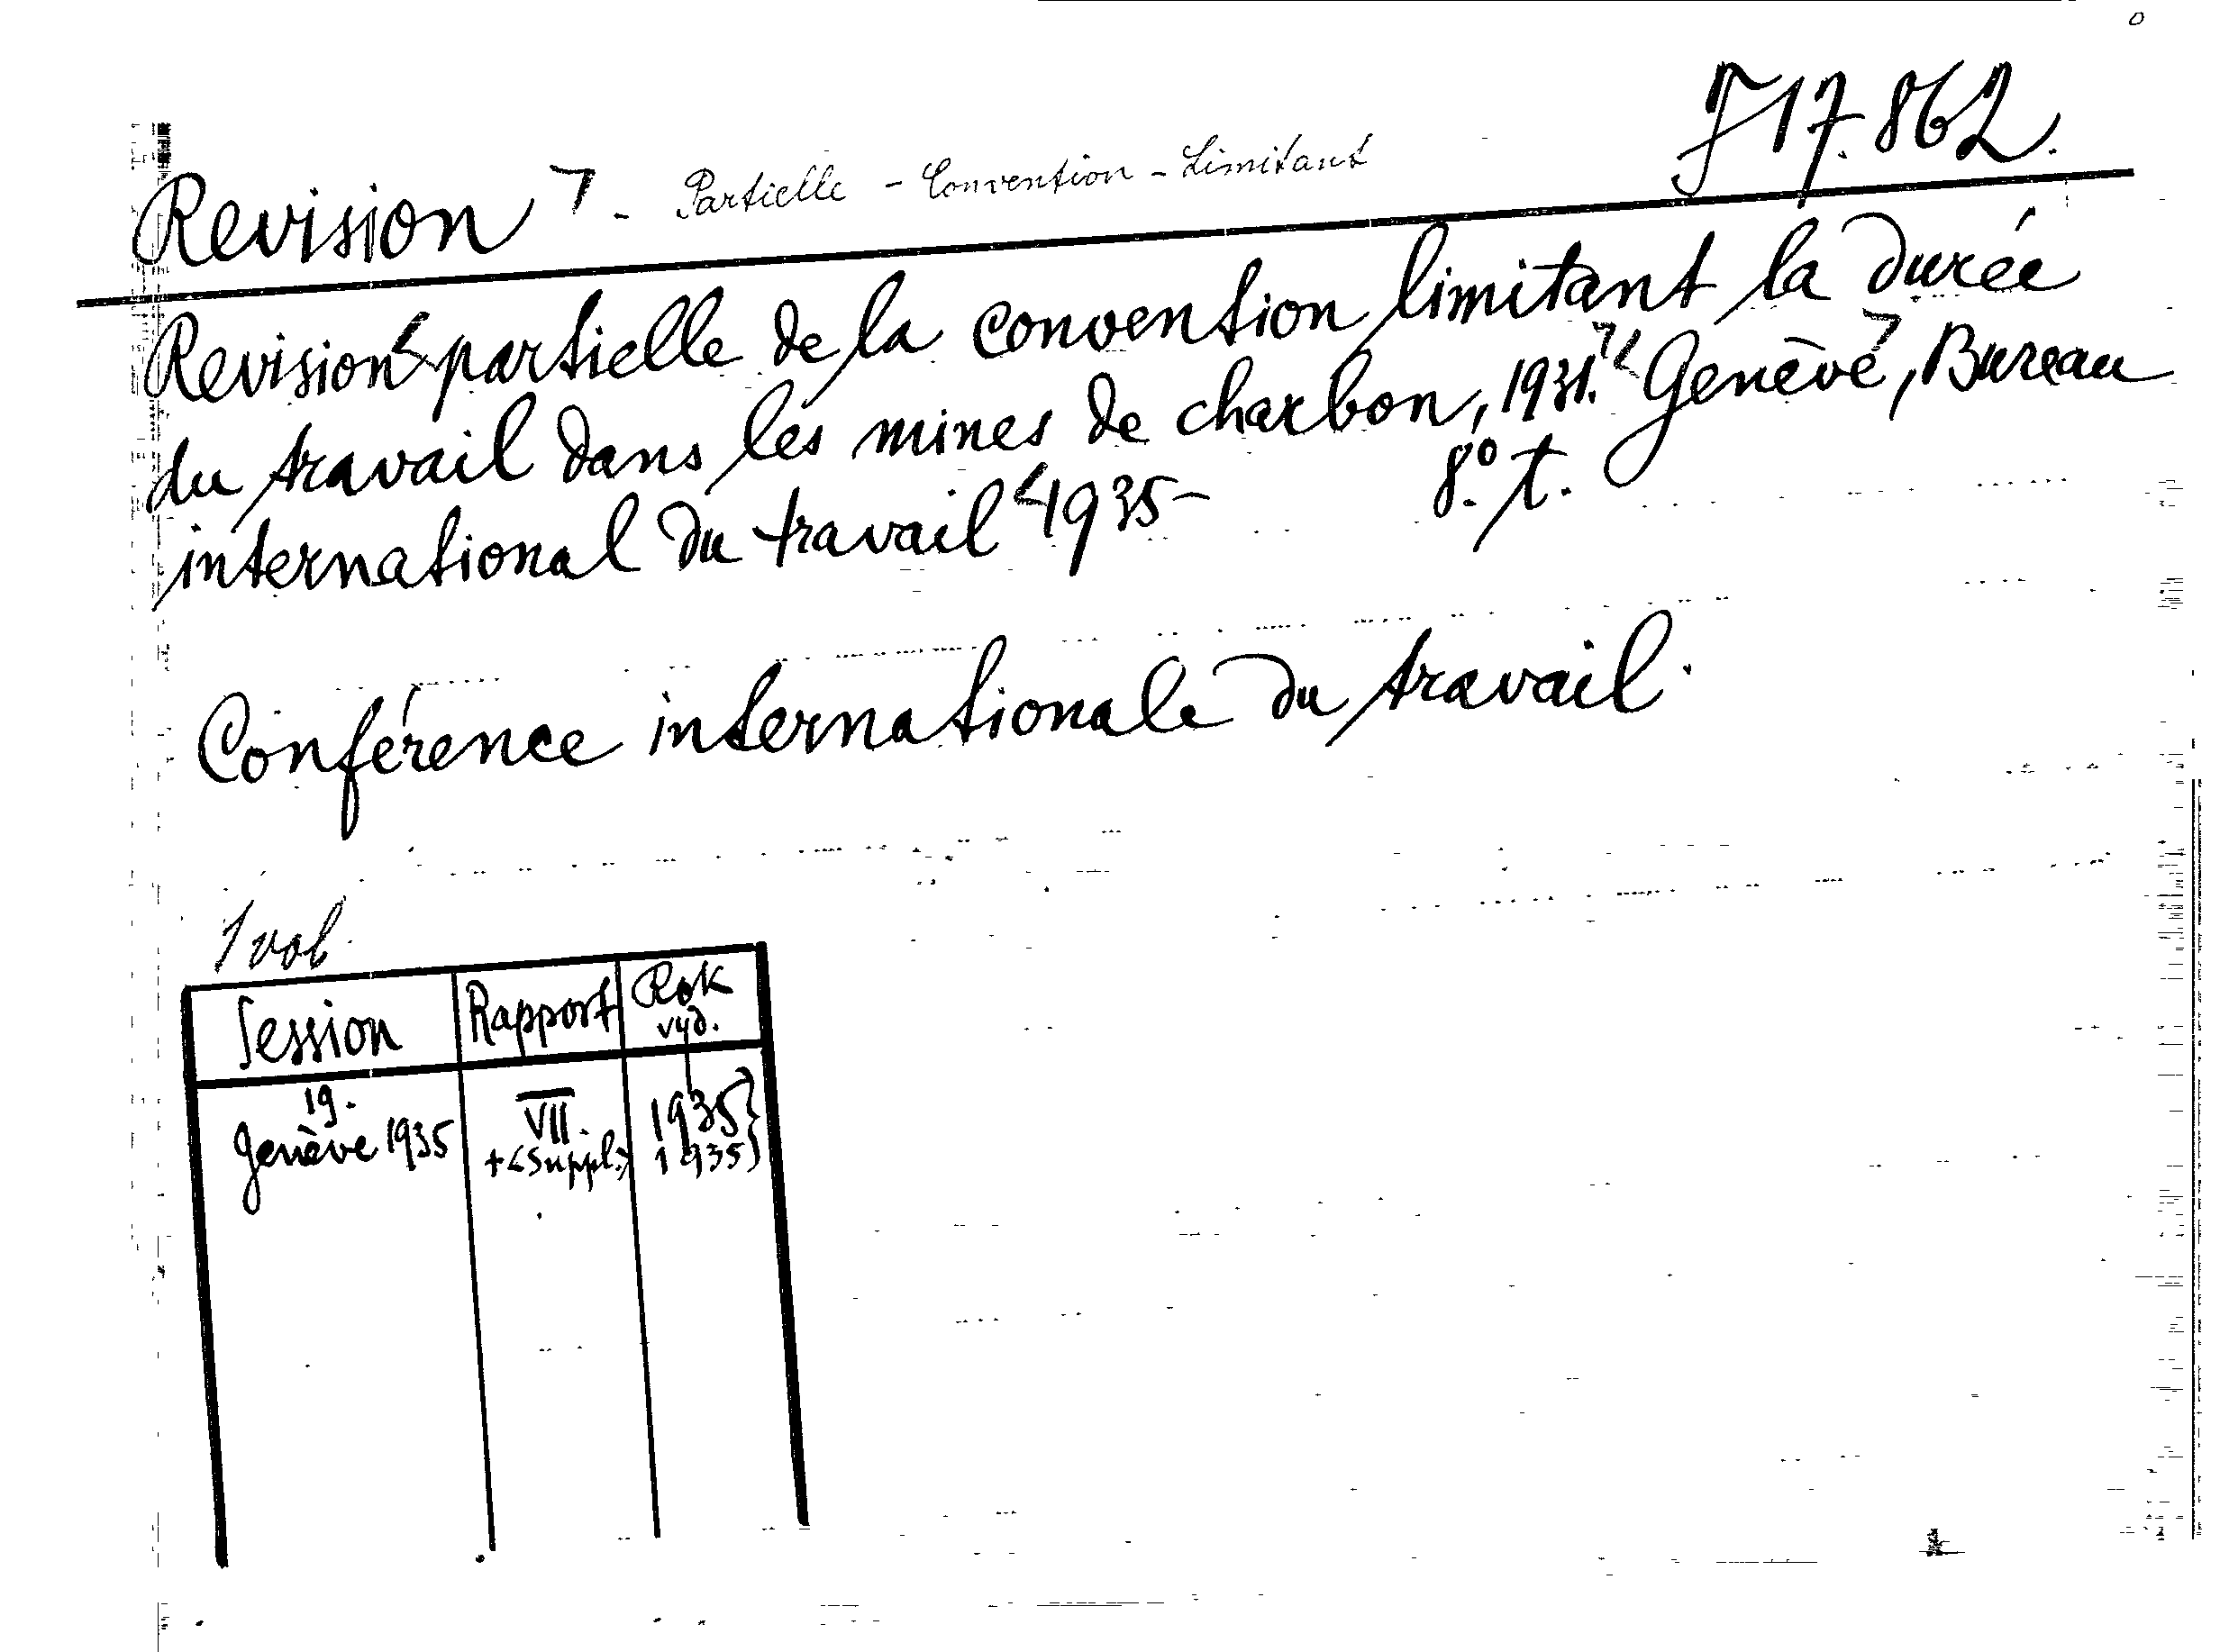 J 17.862.
Revision - Partielle - Convention - Limitant
Revision partielle de la convention limitant la durée
du travail dans les mines de charbon, 1931. Genève, Bureau
international du travail 1935- 8º. t.
Conférence internationale du travail.
1 vol.
Session Rapport Rok vyd.
19. VII. 1935
Genève 1935 + <Suppl.> 1935